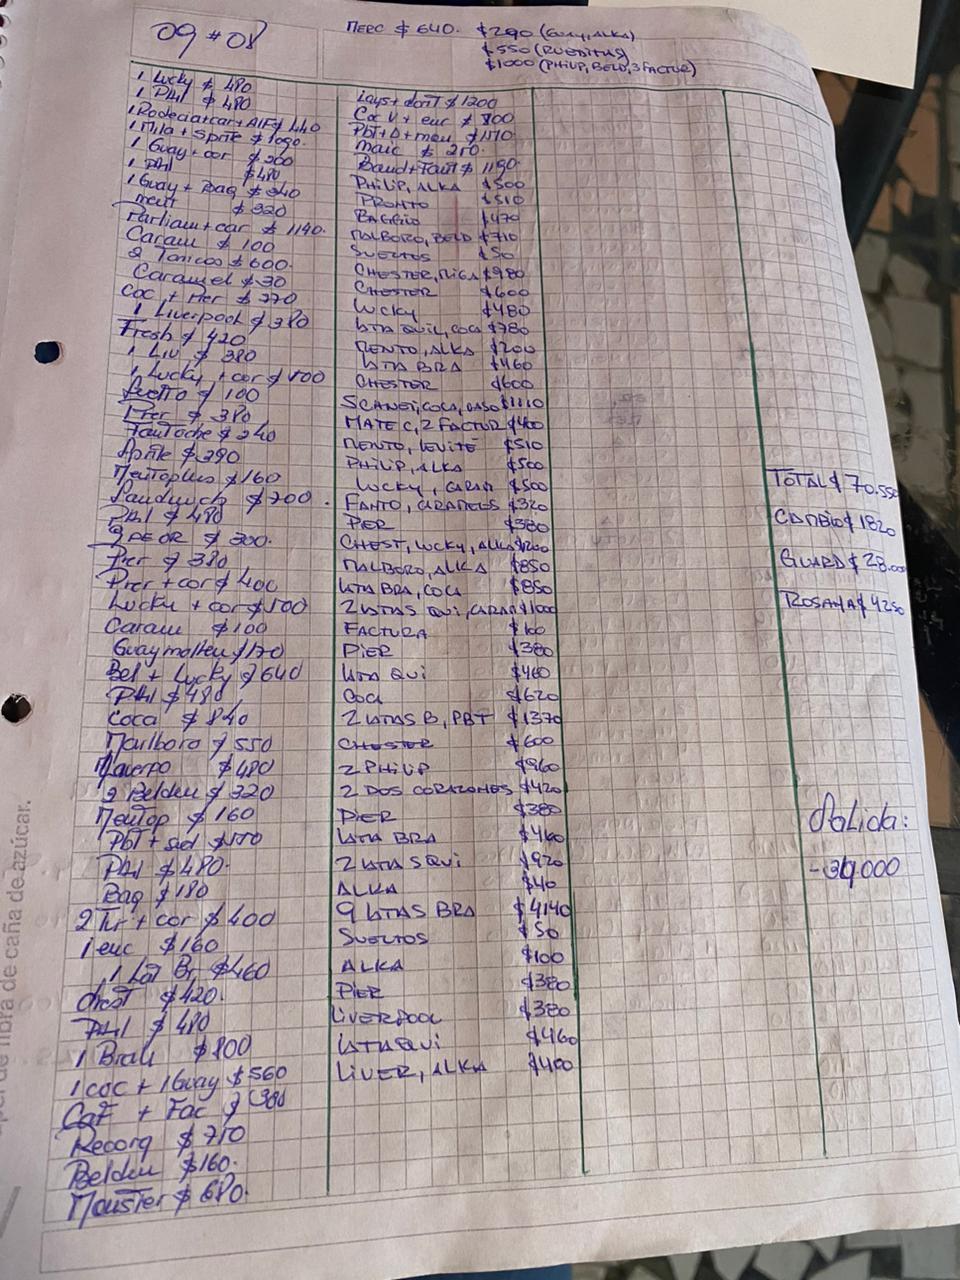 09 # 08
MERC $ 640. $290 (GUAY, ALKA)
$550 (RUEDITAS)
$1000 (PHILIP, BELD, 3 FACTUR)
1 Lucky $ 480
1 Phl $ 480
1 Mila + Sprite $ 1090.
1 Guay + cor $ 200
1 Phl $480
1 Guay + Bag $ 340
ment $ 320
Parliam + car $ 1140.
Caram $ 100
2 Tonicos $ 600.
Caramel $ 30
Coc + Mer $ 770
1 Liverpool $ 380
Fresh $ 420
1 Liv $ 380
1 Lucky + cor $ 500
$ 100
$ 380
$ 240
Sprite $ 390
Mentoplus $ 160
Sandwich $ 700
Phl $ 480
$ 300.
Pier $ 380
Pier + cor $ 400
Lucky + cor $ 500
Caram $ 100
Guaymallen $ 170
Bel + Lucky $ 640
Phl $ 480
Coca $ 840
Marlboro $ 550
$ 480
2 Belden $ 320
Mentop $ 160
Phl $ 480.
Bag $ 180
+ cor $ 400
1 enc $ 160
1 Lat Br $ 460
Chest $ 420.
Phl $ 480
1 Brah $ 800
1 coc + 1 Guay $ 560
Caf + Fac $ 380
Recorg $ 710
Belden $ 160.
Monster $ 680.
Lays + dorit $ 1200
Coc V + enc $ 800
maic $ 250.
$ 1190
PHILIP, ALKA $500
PRONTO $510
BAGGIO $470
MALBORO, BELD $710
SUELTOS $50
CHESTER, $980
CHESTER $600
LUCKY $480
LATA QUIL, COCA $780
MENTO, ALKA $200
LATA BRA $460
CHESTER $600
COCA, $1110
MATE C, 2 FACTUR $400
MENTO, LEVITÉ $510
PHILIP, ALKA $500
LUCKY, CARAM $500
FANTO, CARAMELOS $320
PIER $380
CHEST, LUCKY, ALKA
MALBORO, ALKA $850
LATA BRA, COCA $850
2 LATAS QUI, CARAM $1000
FACTURA $100
PIER $380
LATA QUI $460
COCA $620
2 LATAS B, PBT $1370
CHESTER $600
2 PHILIP $960
2 DOS CORAZONES $420
PIER $380
LATA BRA $460
2 LATAS QUI $920
ALKA $40
9 LATAS BRA $4140
SUELTOS $50
ALKA $100
PIER $380
LIVERPOOL $380
LATA QUI $460
LIVER, ALKA $400
TOTAL $ 70.550
CAMBIO $ 1820
GUARD $ 28.000
ROSANA $ 4250
Salida: